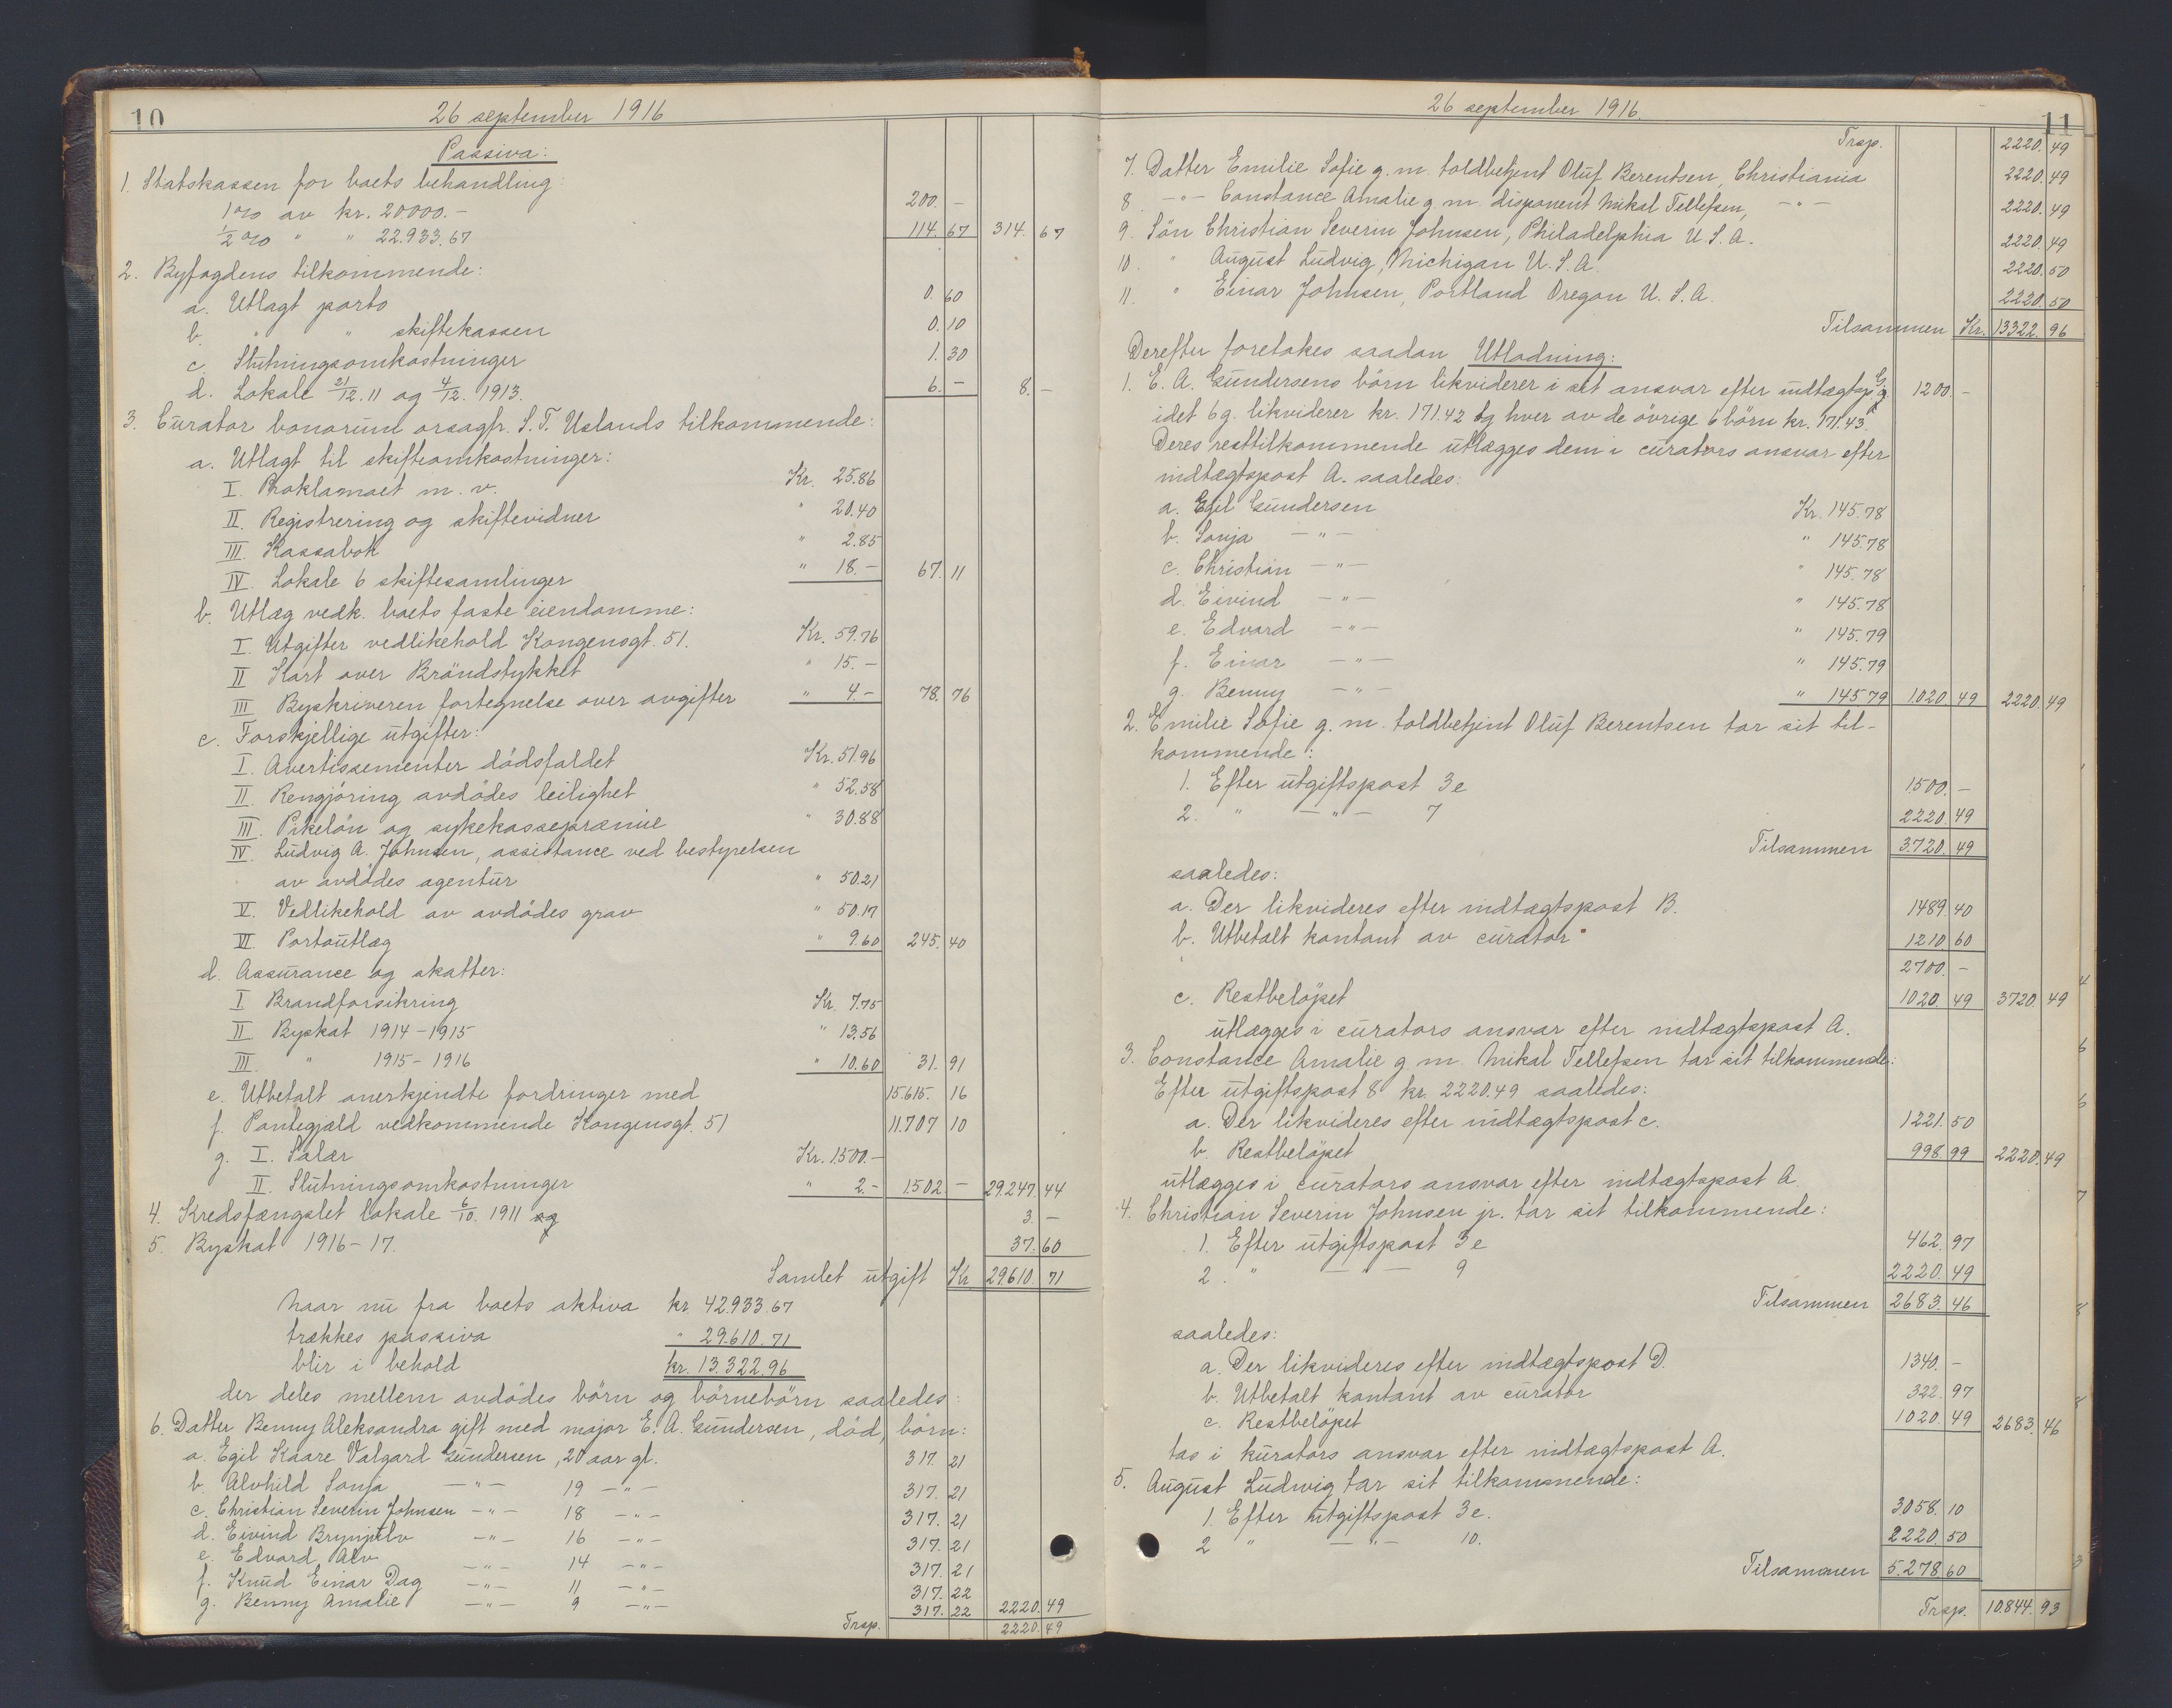 10
26 september 1916
Passiva:
1. Statskassen for boets behandling:
1% av kr. 20000.- 200. -
1/2% " " 22.933.67 114. 67 314. 67
2. Byfogdens tilkommende:
a. Utlagt porto 0. 60
b. " " skiftekassen 0. 10
c. Slutningsomkostninger 1. 30
d. Lokale 21/12.11 og 4/12. 1913. 6. - 8. -
3. Curator bonorum orsagfr. S. T. Uslands tilkommende:
a. Utlagt til skifteomkostninger:
I. Proklamaet m. v. Kr. 25.86
II. Registrering og skiftevidner " 20.40
III. Kassabok " 2.85
IV. Lokale 6 skiftesamlinger " 18.- 67. 11
b. Utlæg vedk. boets faste eiendomme:
I. Utgifter vedlikehold Kongensgt. 51. Kr. 59.76
II Kart over Bröndstykket " 15.-
III Byskriveren fortegnelse over avgifter " 4.- 78. 76
c. Forskjellige utgifter:
I. Avertissementer dödsfaldet Kr. 51.96
II. Rengjöring avdödes leilighet " 52.58
III. Pikelön og sykekassepræmie " 30.88
IV. Ludvig A. Johnsen, assistance ved bestyrelsen
av avdödes agentur " 50.21
V. Vedlikehold av avdödes grav " 50.17
VI. Portoutlæg " 9.60 245. 40
d. Assurance og skatter:
I Brandforsikring Kr. 7.75
II. Byskat 1914-1915 " 13.56
III. " 1915-1916 " 10.60 31. 91
e. Utbetalt anerkjendte fordringer med 15.615. 16
f. Pantegjæld vedkommende Kongensgt. 51 11.707 10
g. I. Salær Kr. 1500.-
II. Slutningsomkostninger " 2.- 1.502 - 29.247. 44
4. Kredsfængslet lokale 6/10. 1911 og 3. -
5. Byskat 1916-17. 37. 60
Samlet utgift Kr 29.610. 71
Naar nu fra boets aktiva kr. 42.933.67
trækkes passiva " 29.610.71
blir i behold kr. 13.322.96
der deles mellem avdödes börn og börnebörn saaledes:
6. Datter Benny Aleksandra gift med major E. A. Gundersen, död, börn:
a. Egil Kaare Valgard Gundersen, 20 aar gl. 317. 21
b. Alvhild Sonja -"- 19 -"- 317. 21
c. Christian Severin Johnsen -"- 18 -"- 317. 21
d. Eivind Brynjulv -"- 16 -"- 317. 21
e. Edvard Alv -"- 14 -"- 317. 21
f. Knud Einar Dag -"- 11 -"- 317. 22
g. Benny Amalie -"- 9 -"- 317. 22 2220. 49
Trsp. 2220. 49
11
26 september 1916.
Trsp. 2220. 49
7. Datter Emilie Sofie g. m. toldbetjent Oluf Berentsen, Christiania 2220. 49
8. -"- Constance Amalie g. m. disponent Mikal Tellefsen, -"- 2220. 49
9. Sön Christian Severin Johnsen, Philadelphia U. S. A. 2220. 49
10. " August Ludvig, Michigan U. S. A. 2220. 50
11. " Einar Johnsen, Portland Oregon U. S. A. 2220. 50
Tilsammen Kr. 13322. 96
Derefter foretokes saadan Utlodning:
1. E. A. Gundersens börn likviderer i set ansvar efter indtægtsp. G 1200. -
idet 6g. likviderer kr. 171.42 og hver av de övrige 6 börn kr. 171.43.
Deres resttilkommende utlægges dem i curators ansvar efter
indtægtspost A. saaledes:
a. Egil Gundersen Kr. 145.78
b. Sonja -"- " 145.78
c. Christian -"- " 145.78
d. Eivind -"- " 145.78
e. Edvard -"- " 145.79
f. Einar -"- " 145.79
g. Benny -"- " 145.79 1.020 49 2220. 49
2. Emilie Sofie g. m. toldbetjent Oluf Berentsen tar sit til-
kommende:
1. Efter utgiftspost 3e 1500. -
2. " -"- 7 2220. 49
Tilsammen 3.720. 49
saaledes:
a. Der likvideres efter indtægtspost B. 1489. 40
b. Utbetalt kontant av curator 1210. 60
2700. -
c. Restbelöpet 1020. 49 3720. 49
utlægges i curators ansvar efter indtægtspost A.
3. Constance Amalie g. m. Mikal Tellefsen tar sit tilkommende:
Efter utgiftspost 8 kr. 2220.49 saaledes:
a. Der likvideres efter indtægtspost c. 1221. 50
b. Restbelöpet 998. 99 2220. 49
utlægges i curators ansvar efter indtægtspost A.
4. Christian Severin Johnsen jr. tar sit tilkommende:
1. Efter utgiftspost 3e 462. 97
2. " -"- 9 2220. 49
Tilsammen 2683. 46
saaledes:
a. Der likvideres efter indtægtspost D. 1340. -
b. Utbetalt kontant av curator 322. 97
c. Restbelöpet 1020. 49 2683. 46
tas i kurators ansvar efter indtægtspost A.
5. August Ludwig tar sit tilkommende:
1. Efter utgiftspost 3e. 3058. 10
2 " -"- 10. 2220. 50
Tilsammen 5.278 60
Trsp. 10.844. 93